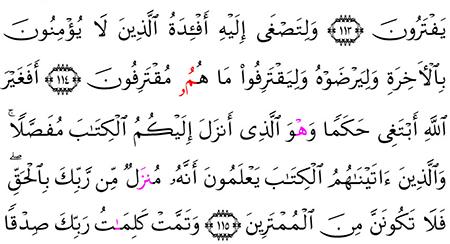 يَفْتَرُونَ ۝١١٣ وَلِتَصْغَىٰ إِلَيْهِ أَفْـِٔدَةُ ٱلَّذِينَ لَا يُؤْمِنُونَ
بِٱلْأَخِرَةِ وَلِيَرْضَوْهُ وَلِيَقْتَرِفُوا۟ مَا هُمُۥ مُقْتَرِفُونَ ۝١١٤ أَفَغَيْرَ
ٱللَّهِ أَبْتَغِى حَكَمًا وَهْوَ ٱلَّذِى أَنزَلَ إِلَيْكُمُ ٱلْكِتَٰبَ مُفَصَّلًا ۚ
وَٱلَّذِينَ ءَاتَيْنَٰهُمُ ٱلْكِتَٰبَ يَعْلَمُونَ أَنَّهُۥ مُنزَلٌ مِّن رَّبِّكَ بِٱلْحَقِّ ۖ
فَلَا تَكُونَنَّ مِنَ ٱلْمُمْتَرِينَ ۝١١٥ وَتَمَّتْ كَلِمَٰتُ رَبِّكَ صِدْقًا